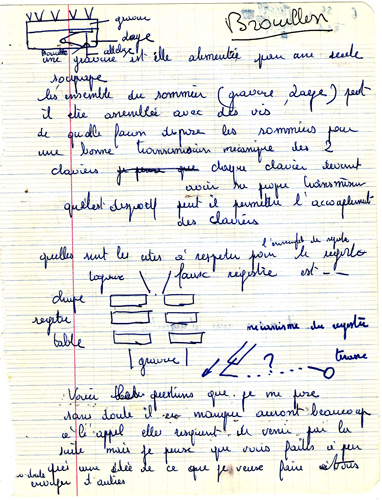 Brouillon
gravure
laye
une gravure est elle alimentée par une seule
soupape
les ensemble du sommier (gravure, laege) peut
il etre assemblée avec des vis,
de quelle facon dispose les sommiers pour
une bonne transmission mécanique des 2
claviers je pense que chaque clavier devant
avoir sa propre transmission
quel est dispositif peut il permettre l'accouplement
des claviers
quelles sont les cotes a respecter pour le registre
fausse registre est - -
chape
registre
table
gravure
mécanisme du registre
?
tirasse
Voici les questions que je me pose
sans doute il en manque auront beaucoup
a l'appel elle resquent de venir par la
suite mais je pense que vous faites a peu
près une idée de ce que je veuse faire
d'autres